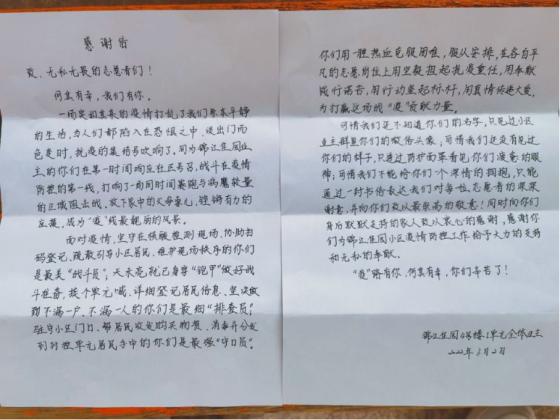 感谢信
致、无私无畏的志愿者们！
何其有幸，我们有你。
一场突如其来的疫情打乱了我们原本平静
的生活，为人们都陷入在恐慌之中，谈出门而
色变时，抗疫的集结号吹响了。同为锦江佳园业
主的你们在第一时间响应社区号召，战斗在疫情
防控的第一线，打响了一场同时间赛跑与病魔较量
的区域阻击战，放下家中的父母妻儿，铿锵有力的
成为"疫"线最靓丽的风景。
面对疫情，坚守在核酸检测现场，协助扫
码登记，疏散引导小区居民，维护现场秩序的你们
是最美"战斗员"，天未亮就已身穿"铠甲"做好战
斗准备，挨个单元喊，详细登记居民信息，坚决做
到不漏一户、不漏一人的你们是最细"排查员"；
驻守小区门口，帮居民收发购买物资，消毒并分发
到对应单元居民手中的你们是最强"守门员"。
你们用一腔热血克服困难，服从安排，在各自平
凡的志愿岗位上用坚毅担起抗疫重任，用奉献
践行诺言，用行动竖起标杆，用真情传递大爱，
为打赢这场战"疫"贡献力量。
可惜我们是不知道你们的名字，只见过小区
业主群里你们的微信头像，可惜我们还没有见过
你们的样子，只透过防护面罩看见你们疲惫的眼
眸，可惜我们不能给你们一个深情的拥抱，只能
通过一封书信表达我们对每位志愿者的浓浓
谢意，并向你们致以最崇高的敬意！同时向你们
身后默默支持的家人致以衷心的感谢，感谢你
们为锦江佳园小区疫情防控工作给予大力的支持
和无私的奉献。
"疫"路有你，何其有幸，你们辛苦了！
锦江佳园6号楼1单元全体业主
2022年5月2日